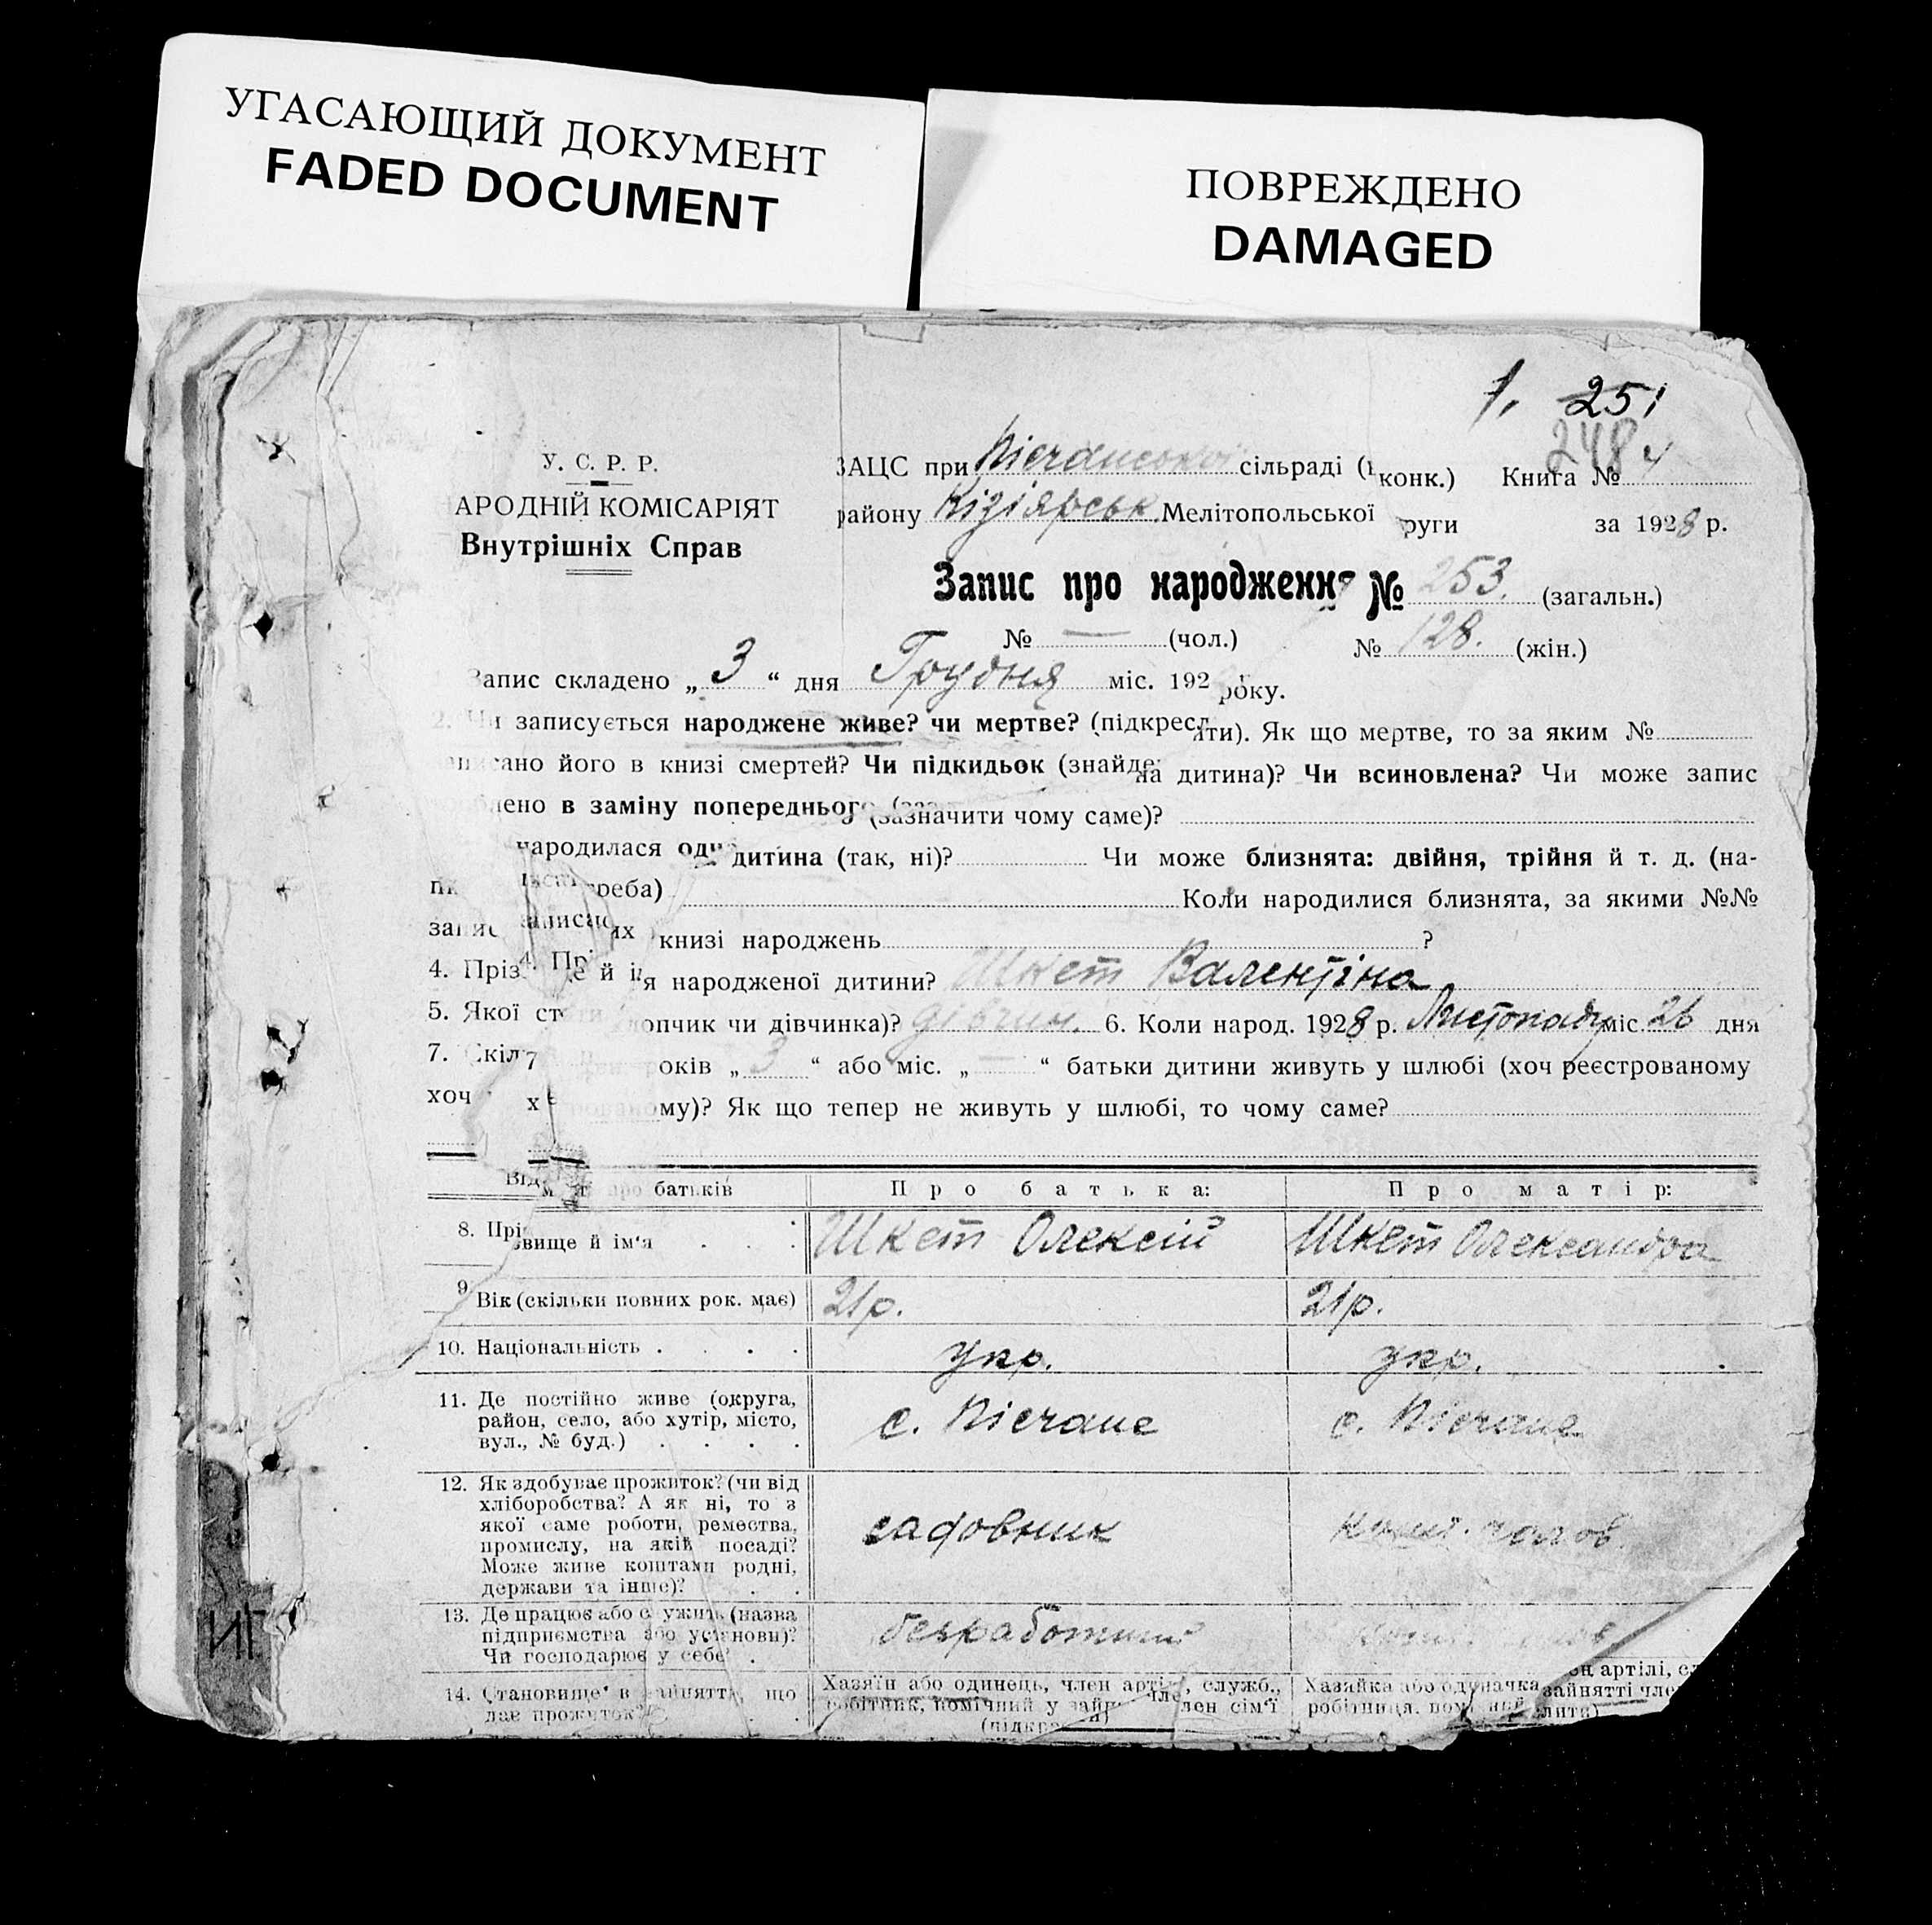 УГАСАЮЩИЙ ДОКУМЕНТ
FADED DOCUMENT
ПОВРЕЖДЕНО
DAMAGED
1. 251
248
У. С. Р. Р.
АРОДНІЙ КОМІСАРІЯТ
Внутрішніх Справ
ЗАЦС при Пісчанської сільраді ( конк.) Книга № 4
району Кізіярськ. Мелітопольської руги за 1928 р.
Запис про народження № 253. (загальн.)
№ — (чол.) № 128. (жін.)
Запис складено „ 3 “ дня Грудня міс. 192 року.
2. Чи записується народжене живе? чи мертве? (підкресляти). Як що мертве, то за яким №
писано його в книзі смертей? Чи підкидьок (знайдена дитина)? Чи всиновлена? Чи може запис
лено в заміну попереднього (зазначити чому саме)?
народилася одна дитина (так, ні)? Чи може близнята: двійня, трійня й т. д. (на-
треба) Коли народилися близнята, за якими №№
записа их книзі народжень ?
4. Пріз ще й ім'я народженої дитини? Шкет Валентіна
5. Якої ст опчик чи дівчинка)? дівчин. 6. Коли народ. 1928 р. Листопаду міс. 26 дня
7. Скіль років „ 3 “ або міс. „ — “ батьки дитини живуть у шлюбі (хоч реєстрованому
хоч му)? Як що тепер не живуть у шлюбі, то чому саме?
Від про батьків Про батька: Про матір:
8. Прізвище й ім‘я Шкет Олексій Шкет Олександра
9 Вік (скільки повних рок. має) 21р. 21р.
10. Національність укр. укр.
11. Де постійно живе (округа,
район, село, або хутір, місто,
вул., № буд.) с. Пісчане с. Пісчане
12. Як здобуває прожиток? (чи від
хліборобства? А як ні, то з
якої саме роботи, ремества,
промислу, на якій посаді?
Може живе коштами родні,
держави та інше)? садовник кошт. чолов.
13. Де працює або служить (назва
підприємства або установи)?
Чи господарює у себе безработний
14. Становище в зайнятті, що
дає прожиток Хазяїн або одинець, член артілі, служб.,
робітник, помічний у зайн член сім‘ї
(підкре
Хазяйка або одиначка, артілі, сл
робітниця, пом зайнятті чле
лити)